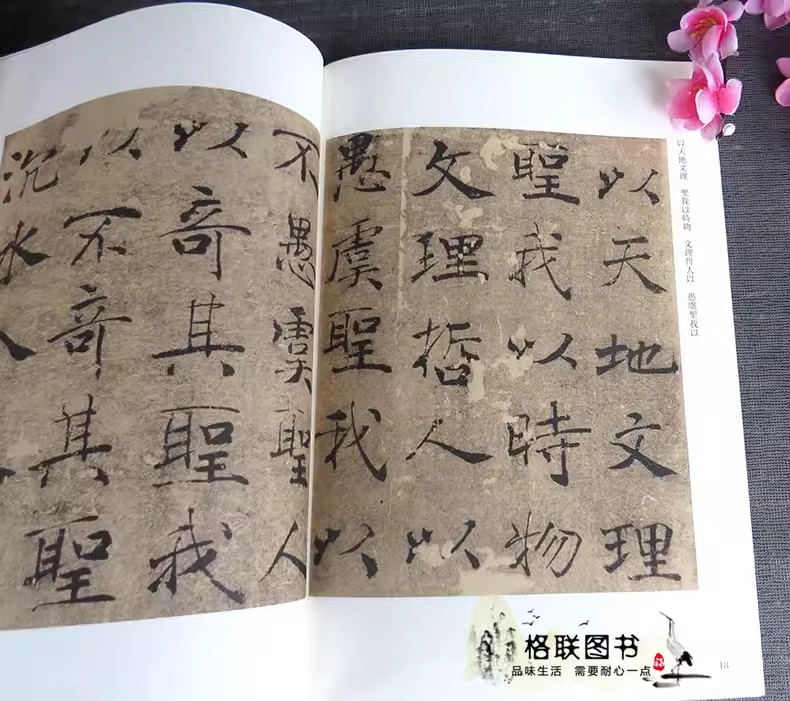 以天地文理
聖我以時物
文理哲人以
愚虞聖我以
不愚虞聖人
以奇其聖我
以不奇其聖
沉水
以天地文理 聖我以時物 文理哲人以 愚虞聖我以
18
格联图书
品味生活 需要耐心一点
福